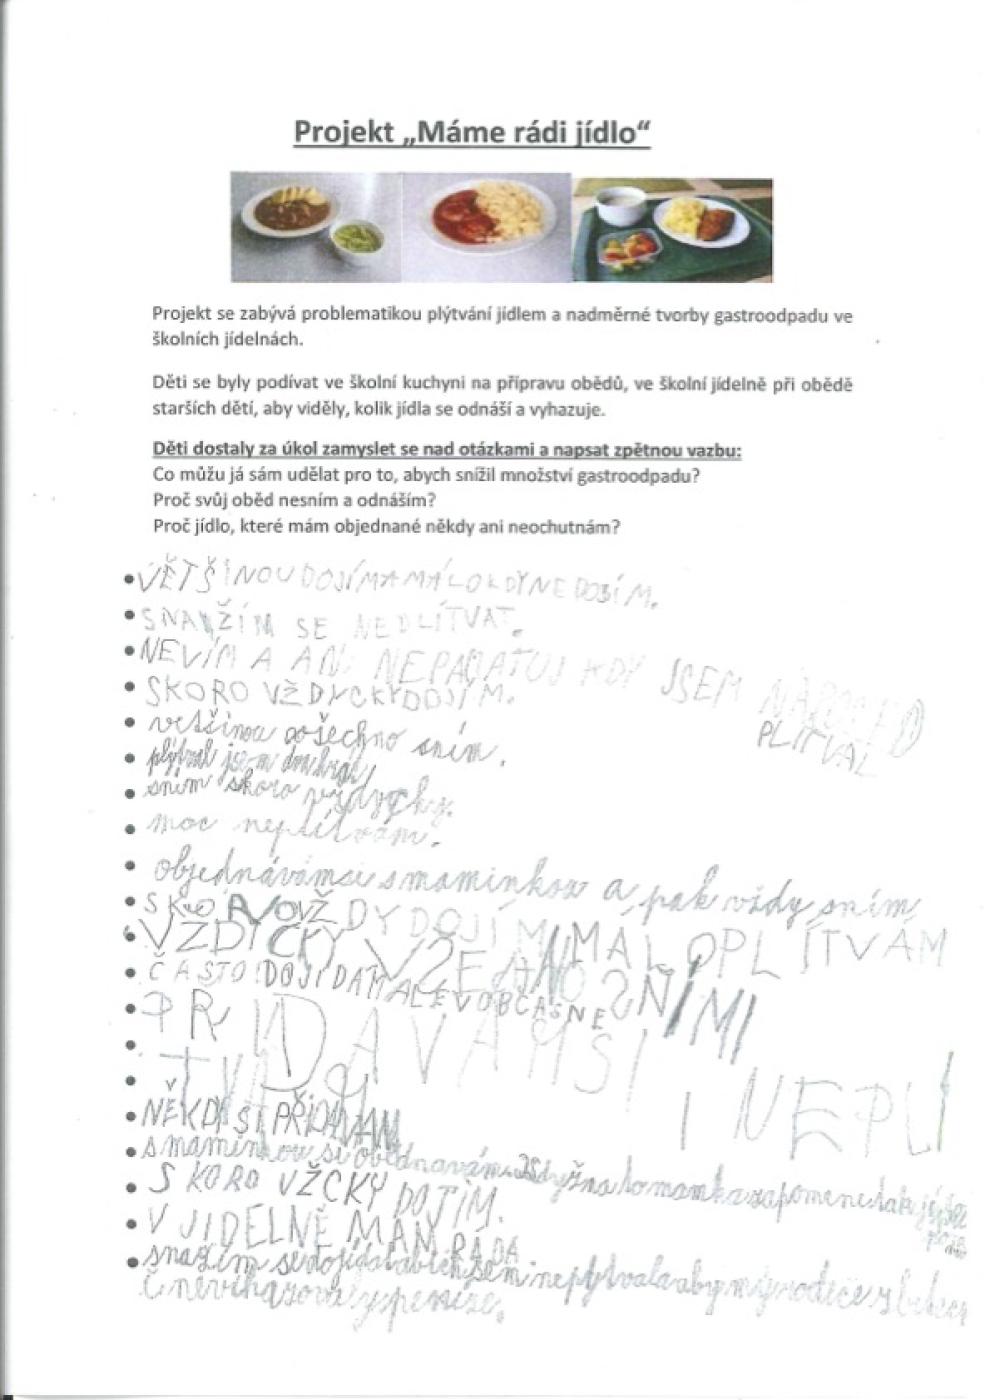 Projekt „Máme rádi jídlo“
Projekt se zabývá problematikou plýtvání jídlem a nadměrné tvorby gastroodpadu ve
školních jídelnách.
Děti se byly podívat ve školní kuchyni na přípravu obědů, ve školní jídelně při obědě
starších dětí, aby viděly, kolik jídla se odnáší a vyhazuje.
Děti dostaly za úkol zamyslet se nad otázkami a napsat zpětnou vazbu:
Co můžu já sám udělat pro to, abych snížil množství gastroodpadu?
Proč svůj oběd nesním a odnáším?
Proč jídlo, které mám objednané někdy ani neochutnám?
• VĚTŠINOU DOJÍMA MÁLOKDY NEDOJÍM.
• SNAŽÍM SE NEPLÍTVAT.
• NEVÍM A ANI NEPAMATUJ KDY JSEM
PLITVAL
• SKORO VŽDYCKY DOJÍM.
• většinou všechno sním.
• plýtval jsem dvakrát
• sním skoro vždycky.
• moc neplítvám.
• objednávámsi s maminkou a pak vždy sním
• SKORO VŽDY DOJÍM MÁLO PLÍTVÁM
• VŽDICKY VŠECHNO SNÍM
• ČASTO DOJÍDAM ALE VOBČAS NE
• PRIDAVAMSI I NEPLÍ
• TVA
• NĚKDI SI PŘIDAVAM
• s maminkou si objednavám. Když na to mamka zapomene tak
• SKORO VŽCKY DOJÍM.
• V JIDELNĚ MAM RADA
• snažím se dojídat abich neplýtvala aby mý rodiče zbitec
č nevihazovaly peníze.